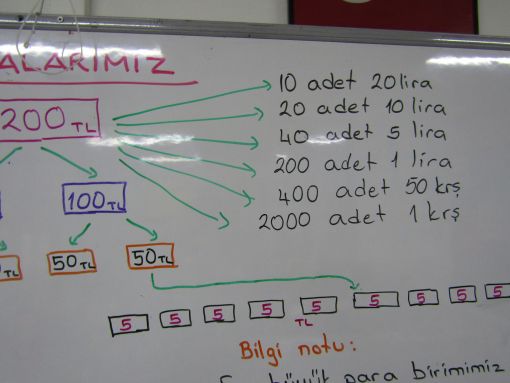 ALARIMIZ
200 TL
10 adet 20 lira
20 adet 10 lira
40 adet 5 lira
200 adet 1 lira
400 adet 50 krş
2000 adet 1 krş
100 TL
TL
50 TL
50 TL
5 5 5 5 5 5 5 5 5
TL
Bilgi notu:
para birimimiz